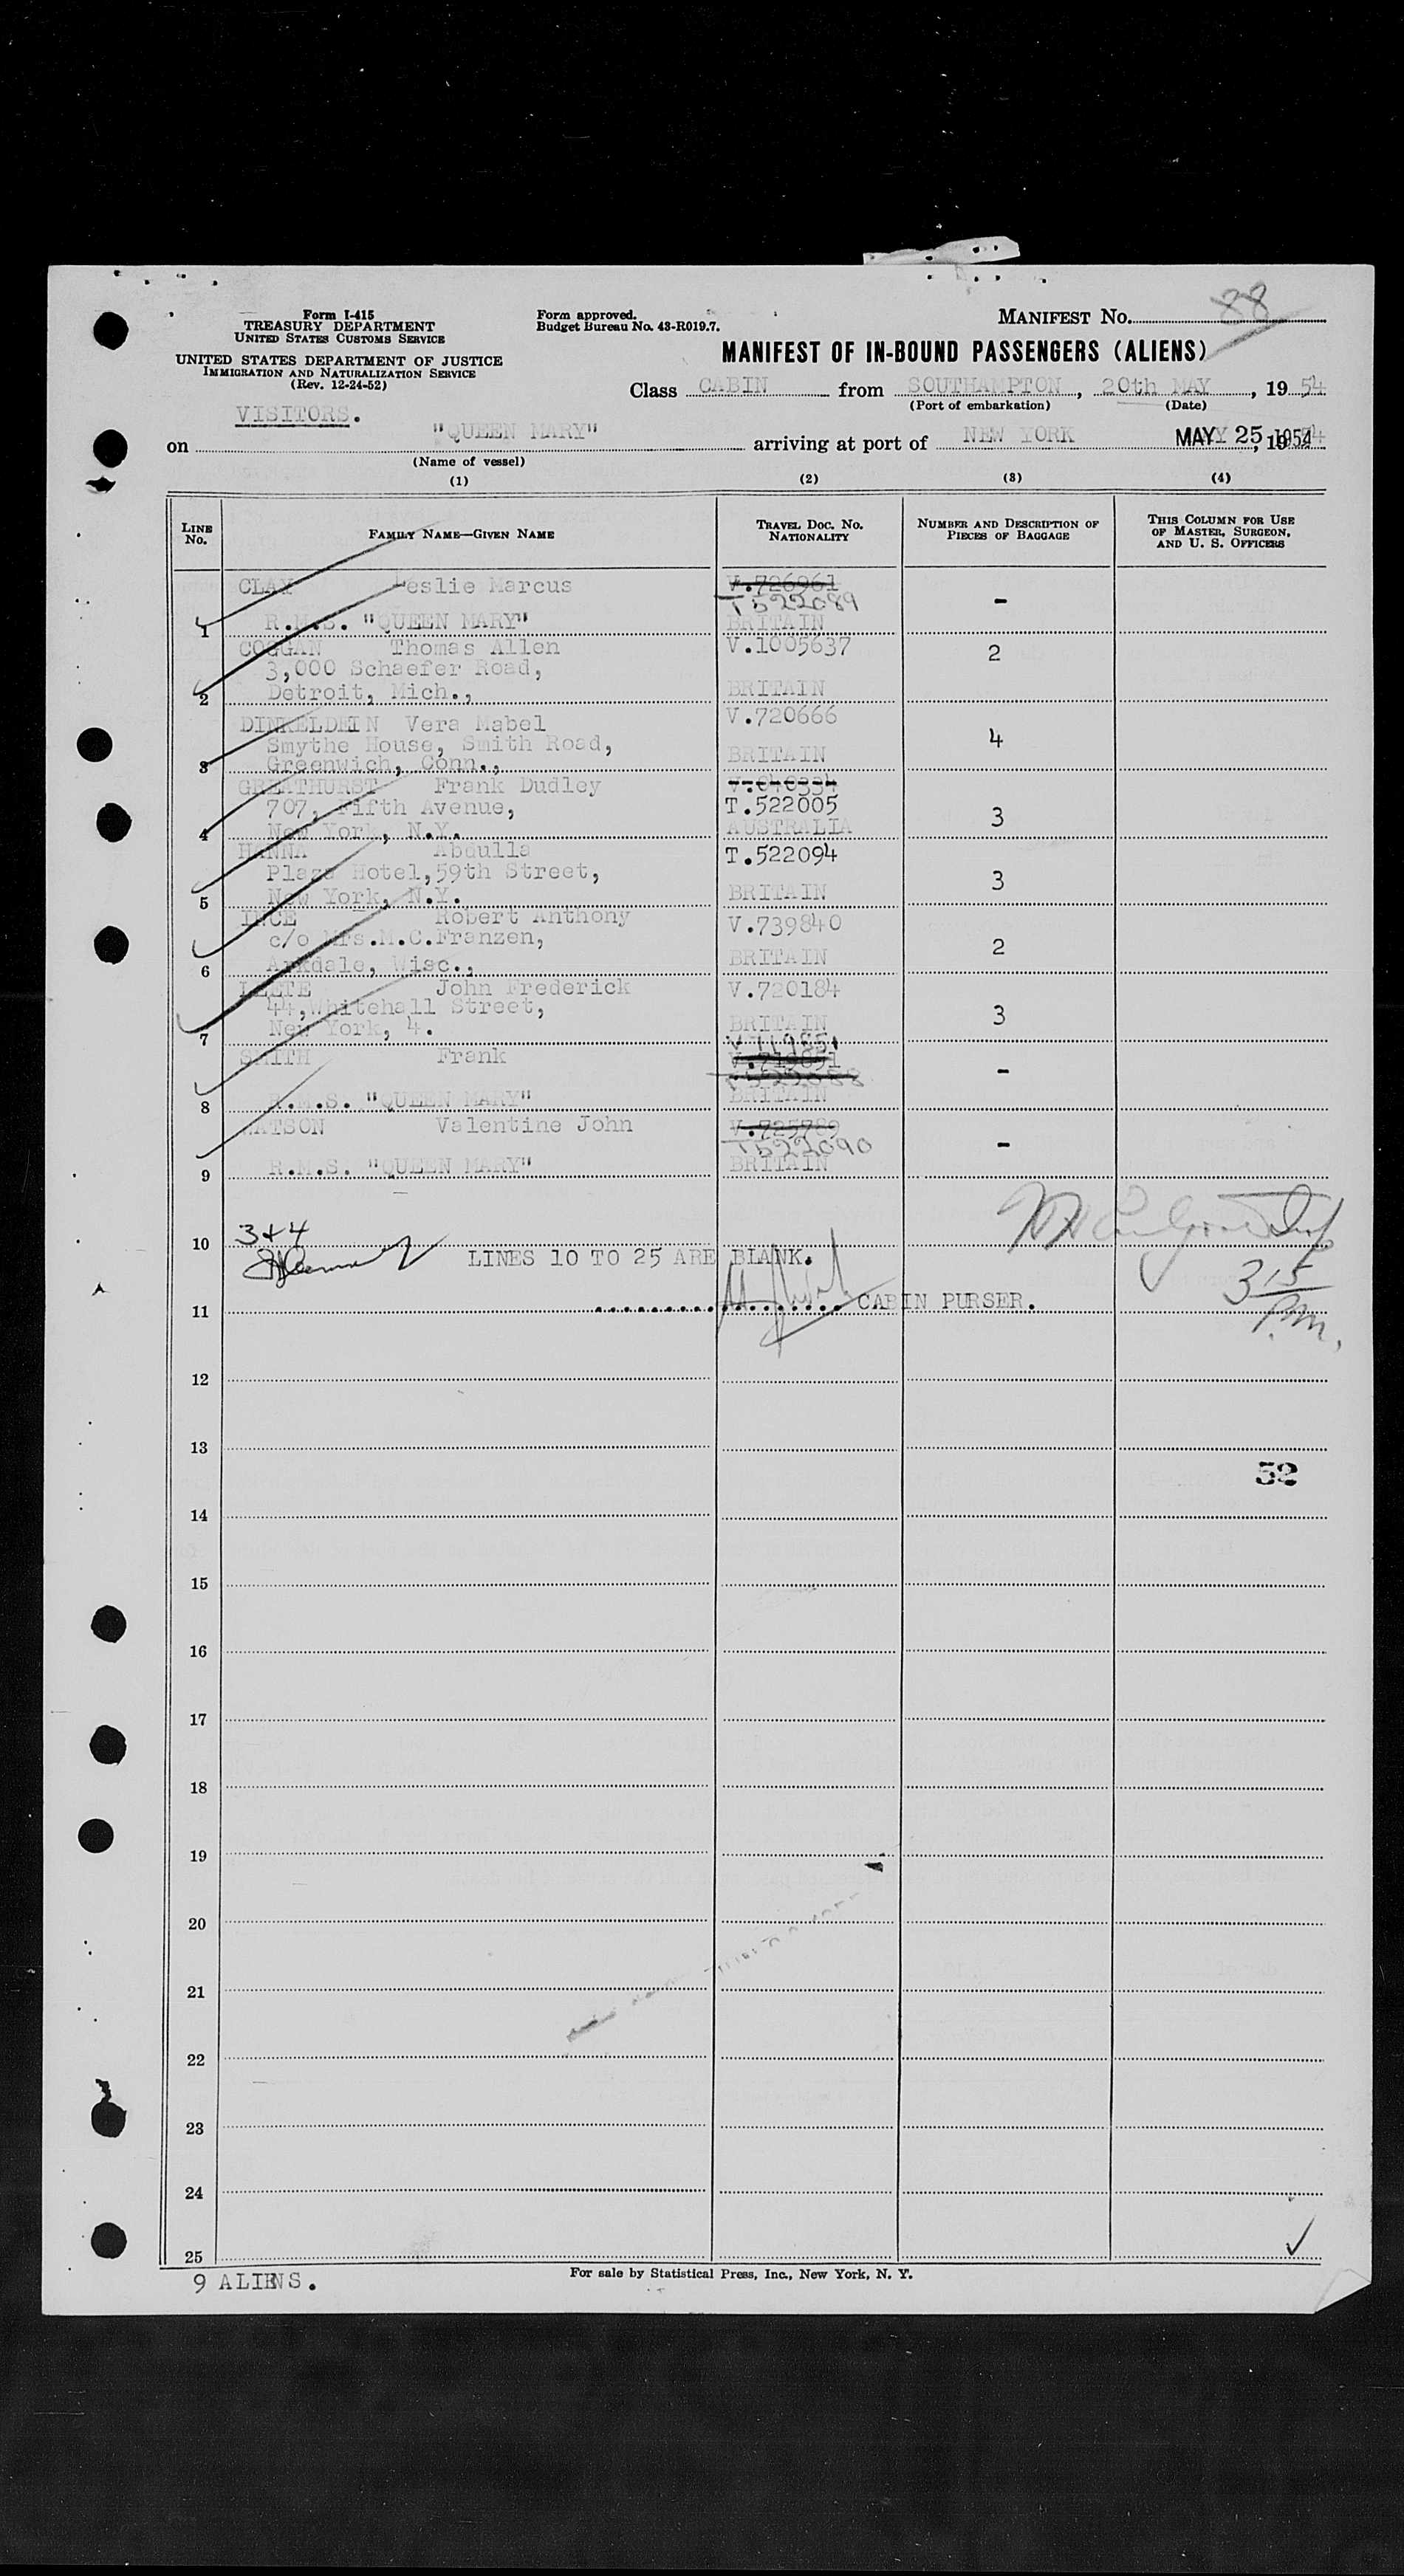 88
Form I-415
TREASURY DEPARTMENT
UNITED STATES CUSTOMS SERVICE
Form approved.
Budget Bureau No. 43-R019.7.
MANIFEST NO.
UNITED STATES DEPARTMENT OF JUSTICE
IMMIGRATION AND NATURALIZATION SERVICE
(Rev. 12-24-52)
MANIFEST OF IN-BOUND PASSENGERS (ALIENS)
Class CABIN from SOUTHAMPTON, 20th MAY, 19 54
(Port of embarkation) (Date)
VISITORS.
on "QUEEN MARY" arriving at port of NEW YORK MAY 25 1954
(Name of vessel)
(1) (2) (3) (4)
LINE NO. FAMILY NAME—GIVEN NAME TRAVEL DOC. NO. NATIONALITY NUMBER AND DESCRIPTION OF PIECES OF BAGGAGE THIS COLUMN FOR USE OF MASTER, SURGEON, AND U. S. OFFICERS
CLAY Leslie Marcus V.726961
T522089 -
1 R.M.S. "QUEEN MARY" BRITAIN
COGGAN Thomas Allen V.1005637 2
3,000 Schaefer Road,
2 Detroit, Mich., BRITAIN
DINKELDEIN Vera Mabel V.720666
Smythe House, Smith Road, BRITAIN 4
3 Greenwich, Conn.,
GREATHURST Frank Dudley
707, Fifth Avenue, T.522005 3
4 New York, N.Y. AUSTRALIA
HANNA Abdulla T.522094
Plaza Hotel,59th Street, 3
5 New York, N.Y. BRITAIN
INCE Robert Anthony V.739840
c/o Mrs.M.C.Franzen, 2
6 Arkdale, Wisc., BRITAIN
LEETE John Frederick V.720184
44,Whitehall Street, 3
7 New York, 4. BRITAIN
SMITH Frank -
8 R.M.S. "QUEEN MARY" BRITAIN
WATSON Valentine John V.725789
T522090 -
9 R.M.S. "QUEEN MARY" BRITAIN
10 3+4
LINES 10 TO 25 ARE BLANK.
3 15
P.m.
11 CABIN PURSER.
12
13
52
14
15
16
17
18
19
20
21
22
23
24
25
9 ALIENS.
For sale by Statistical Press, Inc., New York, N. Y.